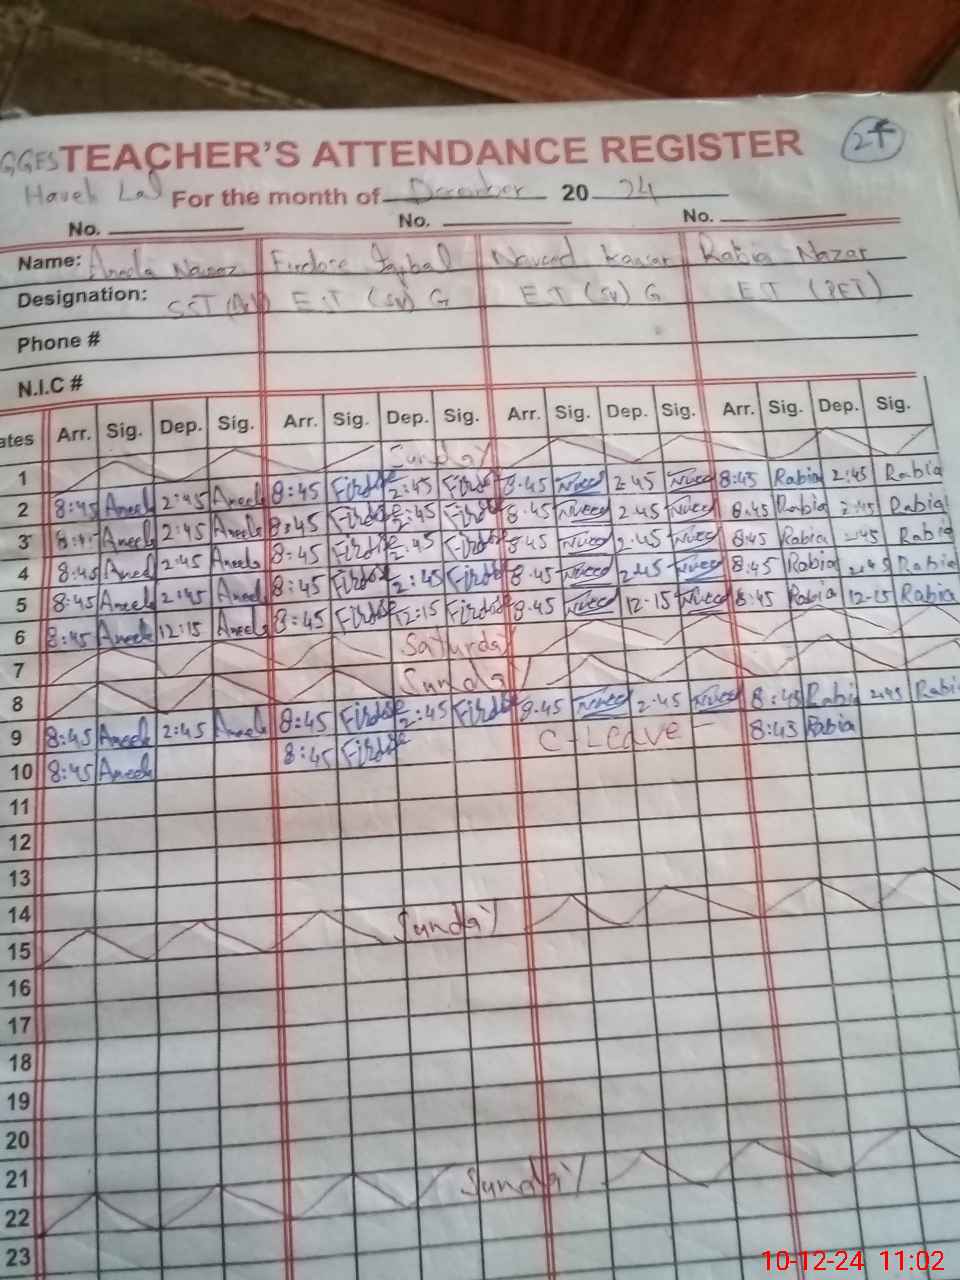 GGES TEACHER'S ATTENDANCE REGISTER 24
Haveli Lal For the month of December 20 24
No. No. No.
Name: Aneela Nawaz Firdose Iqbal Naveed Kausar Rabia Nazar
Designation: SST E.S.T (SV) G E.S.T (SV) G E.S.T (PET)
Phone #
N.I.C #
ates Arr. Sig. Dep. Sig. Arr. Sig. Dep. Sig. Arr. Sig. Dep. Sig. Arr. Sig. Dep. Sig.
1 Sunday
2 8:45 Aneela 2:45 Aneela 8:45 Firdose 2:45 Firdose 8.45 Naveed 2.45 Naveed 8:45 Rabia 2:45 Rabia
3 8:45 Aneela 2:45 Aneela 8:45 Firdose 2:45 Firdose 8.45 Naveed 2.45 Naveed 8:45 Rabia 2:45 Rabia
4 8:45 Aneela 2:45 Aneela 8:45 Firdose 2:45 Firdose 8.45 Naveed 2.45 Naveed 8:45 Rabia 2:45 Rabia
5 8:45 Aneela 2:45 Aneela 8:45 Firdose 2:45 Firdose 8.45 Naveed 2.45 Naveed 8:45 Rabia 2:45 Rabia
6 8:45 Aneela 12:15 Aneela 8:45 Firdose 12:15 Firdose 8.45 Naveed 12-15 Naveed 8:45 Rabia 12-15 Rabia
7 Saturday
8 Sunday
9 8:45 Aneela 2:45 Aneela 8:45 Firdose 2:45 Firdose 8.45 Naveed 2.45 Naveed 8:45 Rabia 2:45 Rabia
10 8:45 Aneela 8:45 Firdose C-Leave 8:45 Rabia
11
12
13
14
15 Sunday
16
17
18
19
20
21
22 Sunday
23
10-12-24 11:02